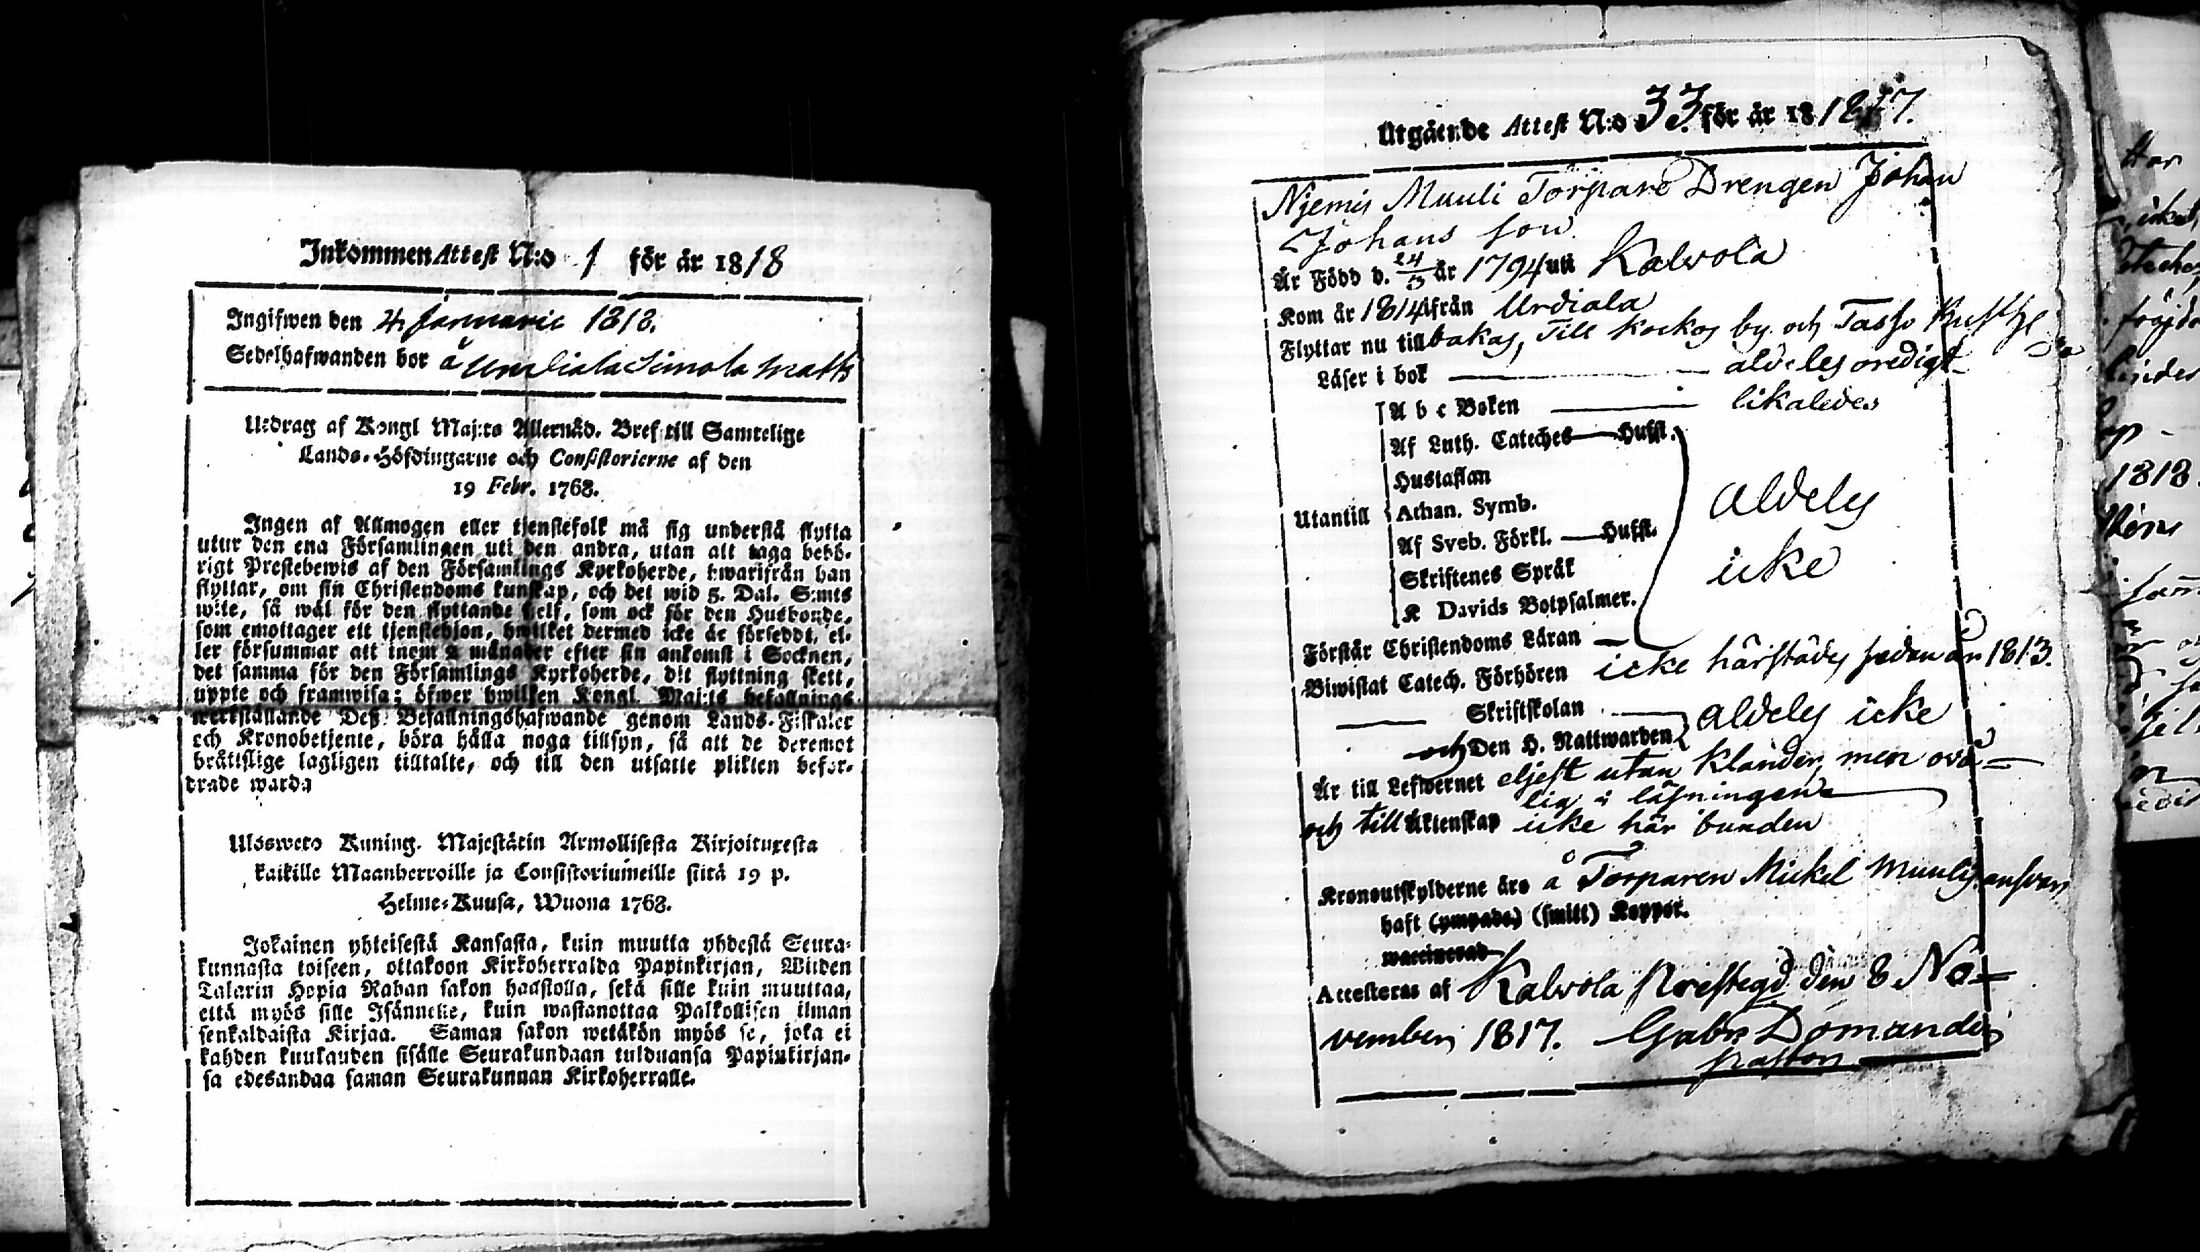 Inkommen Attest N:o 1 för år 1818
Ingifwen den 4 Januarii 1818.
Sedelhafwanden bor å Urdiala Simola Matts
Utdrag af Kongl Maj:ts Allernåd. Bref till Samtelige
Lands-Höfdingarne och Consistorierne af den
19 Febr. 1768.
Ingen af Allmogen eller tjenstefolk må sig understå flytta
utur den ena Församlingen uti den andra, utan att taga behö-
rigt Prestebewis af den Församlings Kyrkoherde, hwarifrån han
flyttar, om sin Christendoms kunskap, och det wid 5. Dal. S:mts
wite, så wäl för den flyttande sielf, som ock för den Husbonde,
som emottager ett tjenstehjon, hwilket dermed icke är försedt, el-
ler försummar att inom 2 månader efter sin ankomst i Socknen,
det samma för den Församlings Kyrkoherde, dit flyttning skett,
uppte och framwisa; öfwer hwilken Kongl Maj:ts befallnings
werkställande Deß Befallningshafwande genom Lands-Fiskaler
och Kronobetjente, böra hålla noga tillsyn, så att de deremot
bråttslige lagligen tilltalte, och till den utsatte plikten befor-
drade warda
Uloswero Kuning. Majestätin Armollisesta Kirjoituxesta
kaikille Maanherroille ja Consistoriumeille siitä 19 p.
Helme-Kuusa, Wuona 1768.
Jokainen yhteisestä Kansasta, kuin muutta yhdestä Seura-
kunnasta toiseen, ottakoon Kirkoherralda Papinkirjan, Wiiden
Talarin Hopia Rahan sakon haastolla, sekä sille kuin muuttaa,
että myös sille Isännelle, kuin wastanottaa Palkollisen ilman
senkaldaista Kirjaa. Saman sakon wetäkön myös se, joka ei
kahden kuukauden sisälle Seurakundaan tulduansa Papinkirjan-
sa edesandaa saman Seurakunnan Kirkoherralle.
Utgående Attest N:o 33 för år 18 1817.
Njemis Muuli Torpare Drengen Johan
Johans son
Är Född d. 24/3 år 1794 uti Kalvola
Kom år 1814 ifrån Urdiala
Flyttar nu till bakas, Till Kockos by och Tasso
Läser i bok aldeles oredigt
A b c Boken likaledes
Af Luth. Cateches Hufst.
Hustaflan
Utantill Athan. Symb. aldeles
Af Sveb. Förkl. Hufst.
Skriftenes Språk icke
K Davids Botpsalmer.
Förstår Christendoms Läran
Biwistat Catech. Förhören icke härstädes sedan år 1813.
Skriftskolan aldeles icke
och Den H. Nattwarden
Är till Lefwernet eljest utan klander, men ovä-
lig i läsningen
och till Äktenskap icke här bunden
Kronoutskylderne äro å Torparen Mickel Muulis ansvar
haft (ympade) (smitt) Koppor.
waccinerad
Attesteras af Kalvola Prestegd den 8 No-
vember 1817. Gabr Domander
pastor